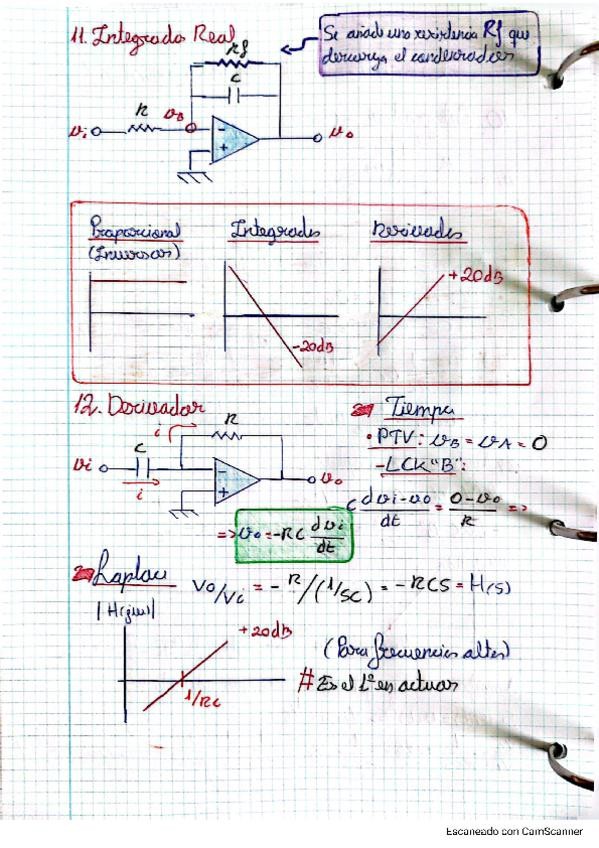 11. Integrado Real
Se añade una resistencia Rf que
descarga el condensador
Rf
C
R
vB
vi
vo
-
+
Proporcional
(Inversor)
Integrador
Derivador
+20dB
-20dB
12. Derivador
R
i
C
vi
i
-
+
vo
Tiempo
• PTV: vB = vA = 0
- LCK "B":
C dvi-vo/dt = 0-vo/R =>
=> vo = -RC dvi/dt
Laplace
Vo/Vi = - R/(1/SC) = -RCS = H(s)
|H(jw)|
+20dB
1/RC
(Para frecuencias altas)
# Es el 1º en actuar
Escaneado con CamScanner